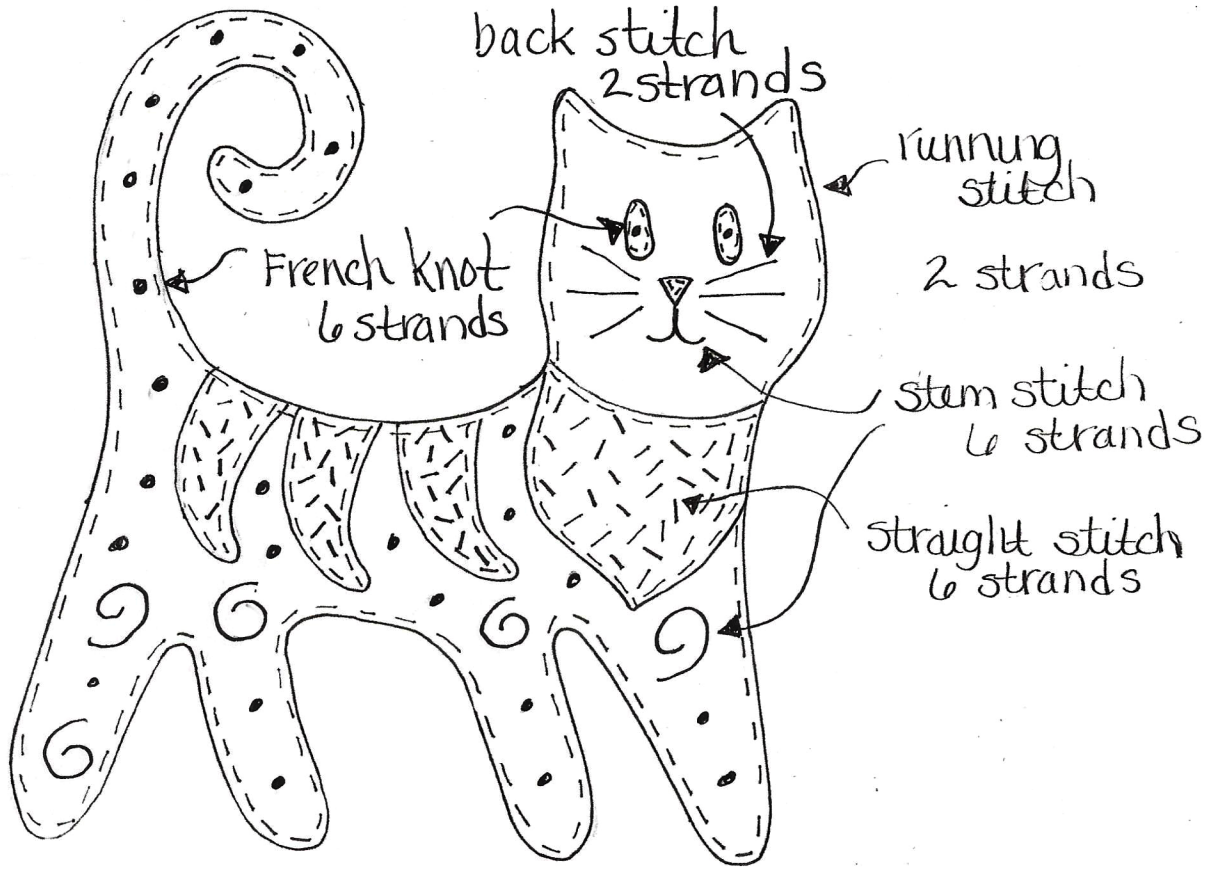 back stitch
2 strands
running
stitch
2 strands
French knot
6 strands
stem stitch
6 strands
straight stitch
6 strands